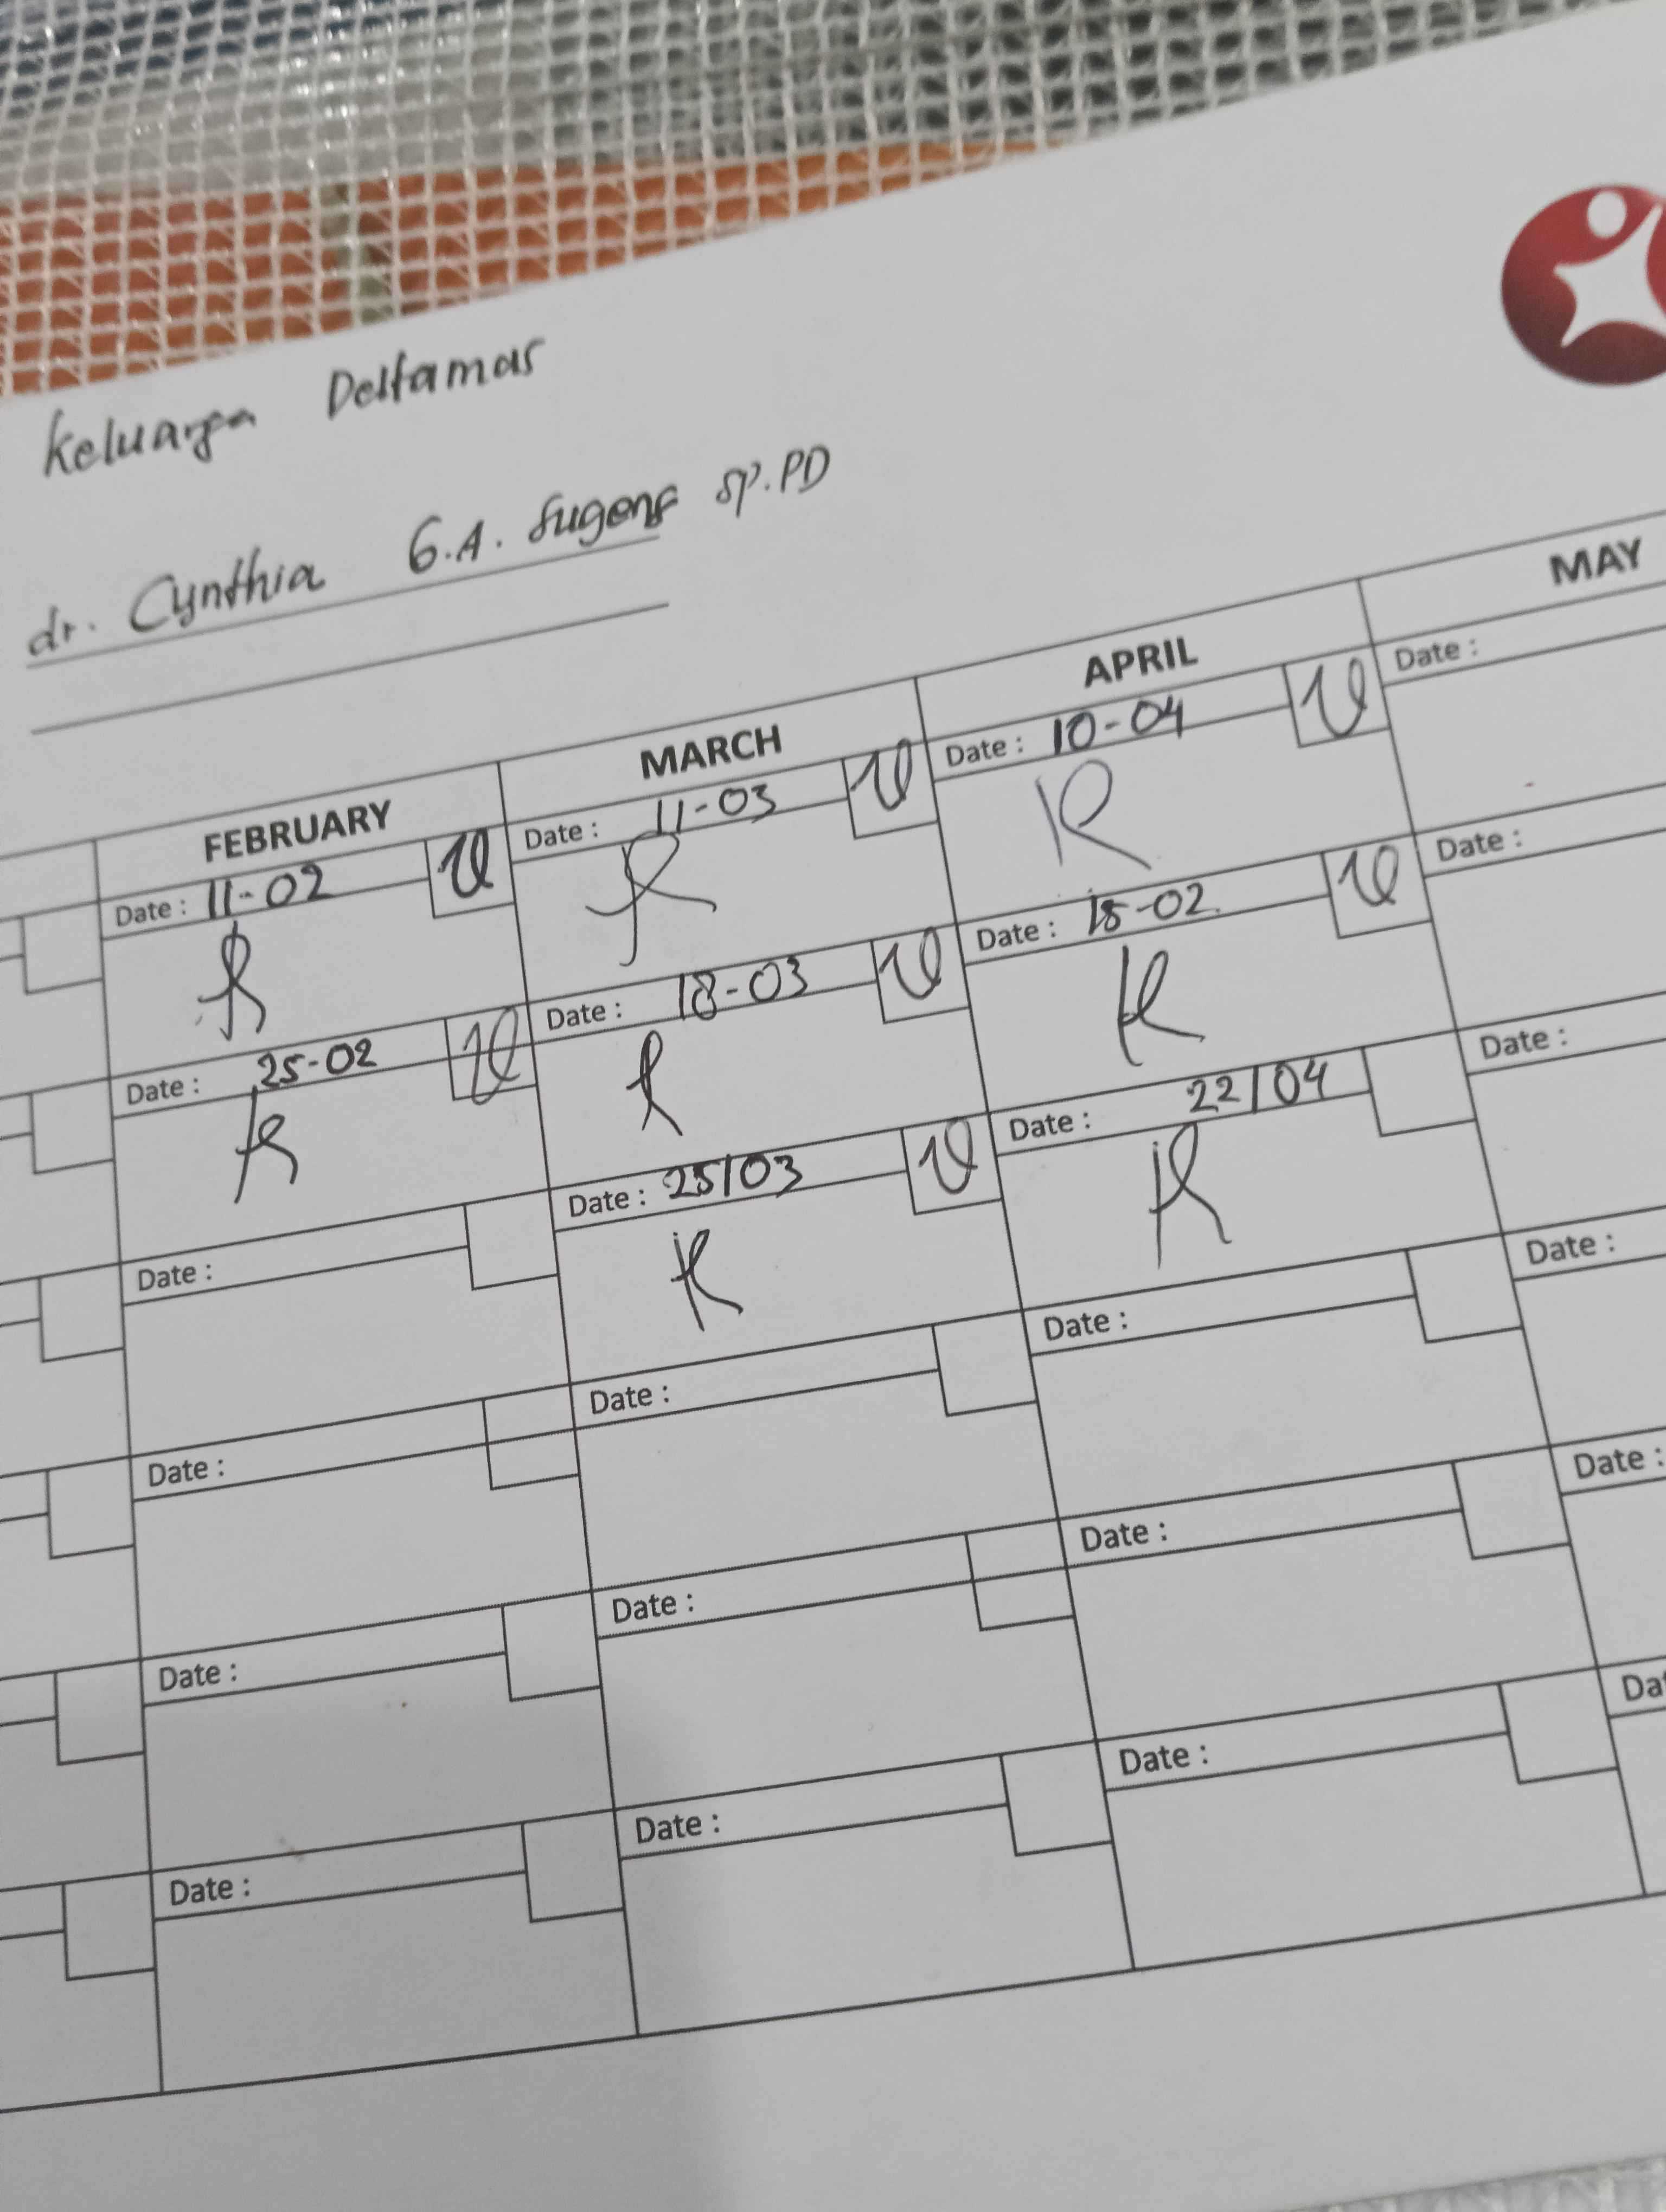 Keluarga Deltamas
dr. Cynthia G.A. Sugeng Sp.PD
FEBRUARY MARCH APRIL MAY
Date : 11-02 Date : 11-03 Date : 10-04 Date :
Date : 25-02 Date : 18-03 Date : 18-02. Date :
Date : Date : 25/03 Date : 22/04 Date :
Date : Date : Date : Date :
Date : Date : Date : Date :
Date : Date : Date :